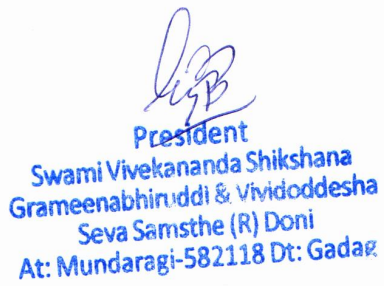 President
Swami Vivekananda Shikshana
Grameenabhiruddi & Vividoddesha
Seva Samsthe (R) Doni
At: Mundaragi-582118 Dt: Gadag